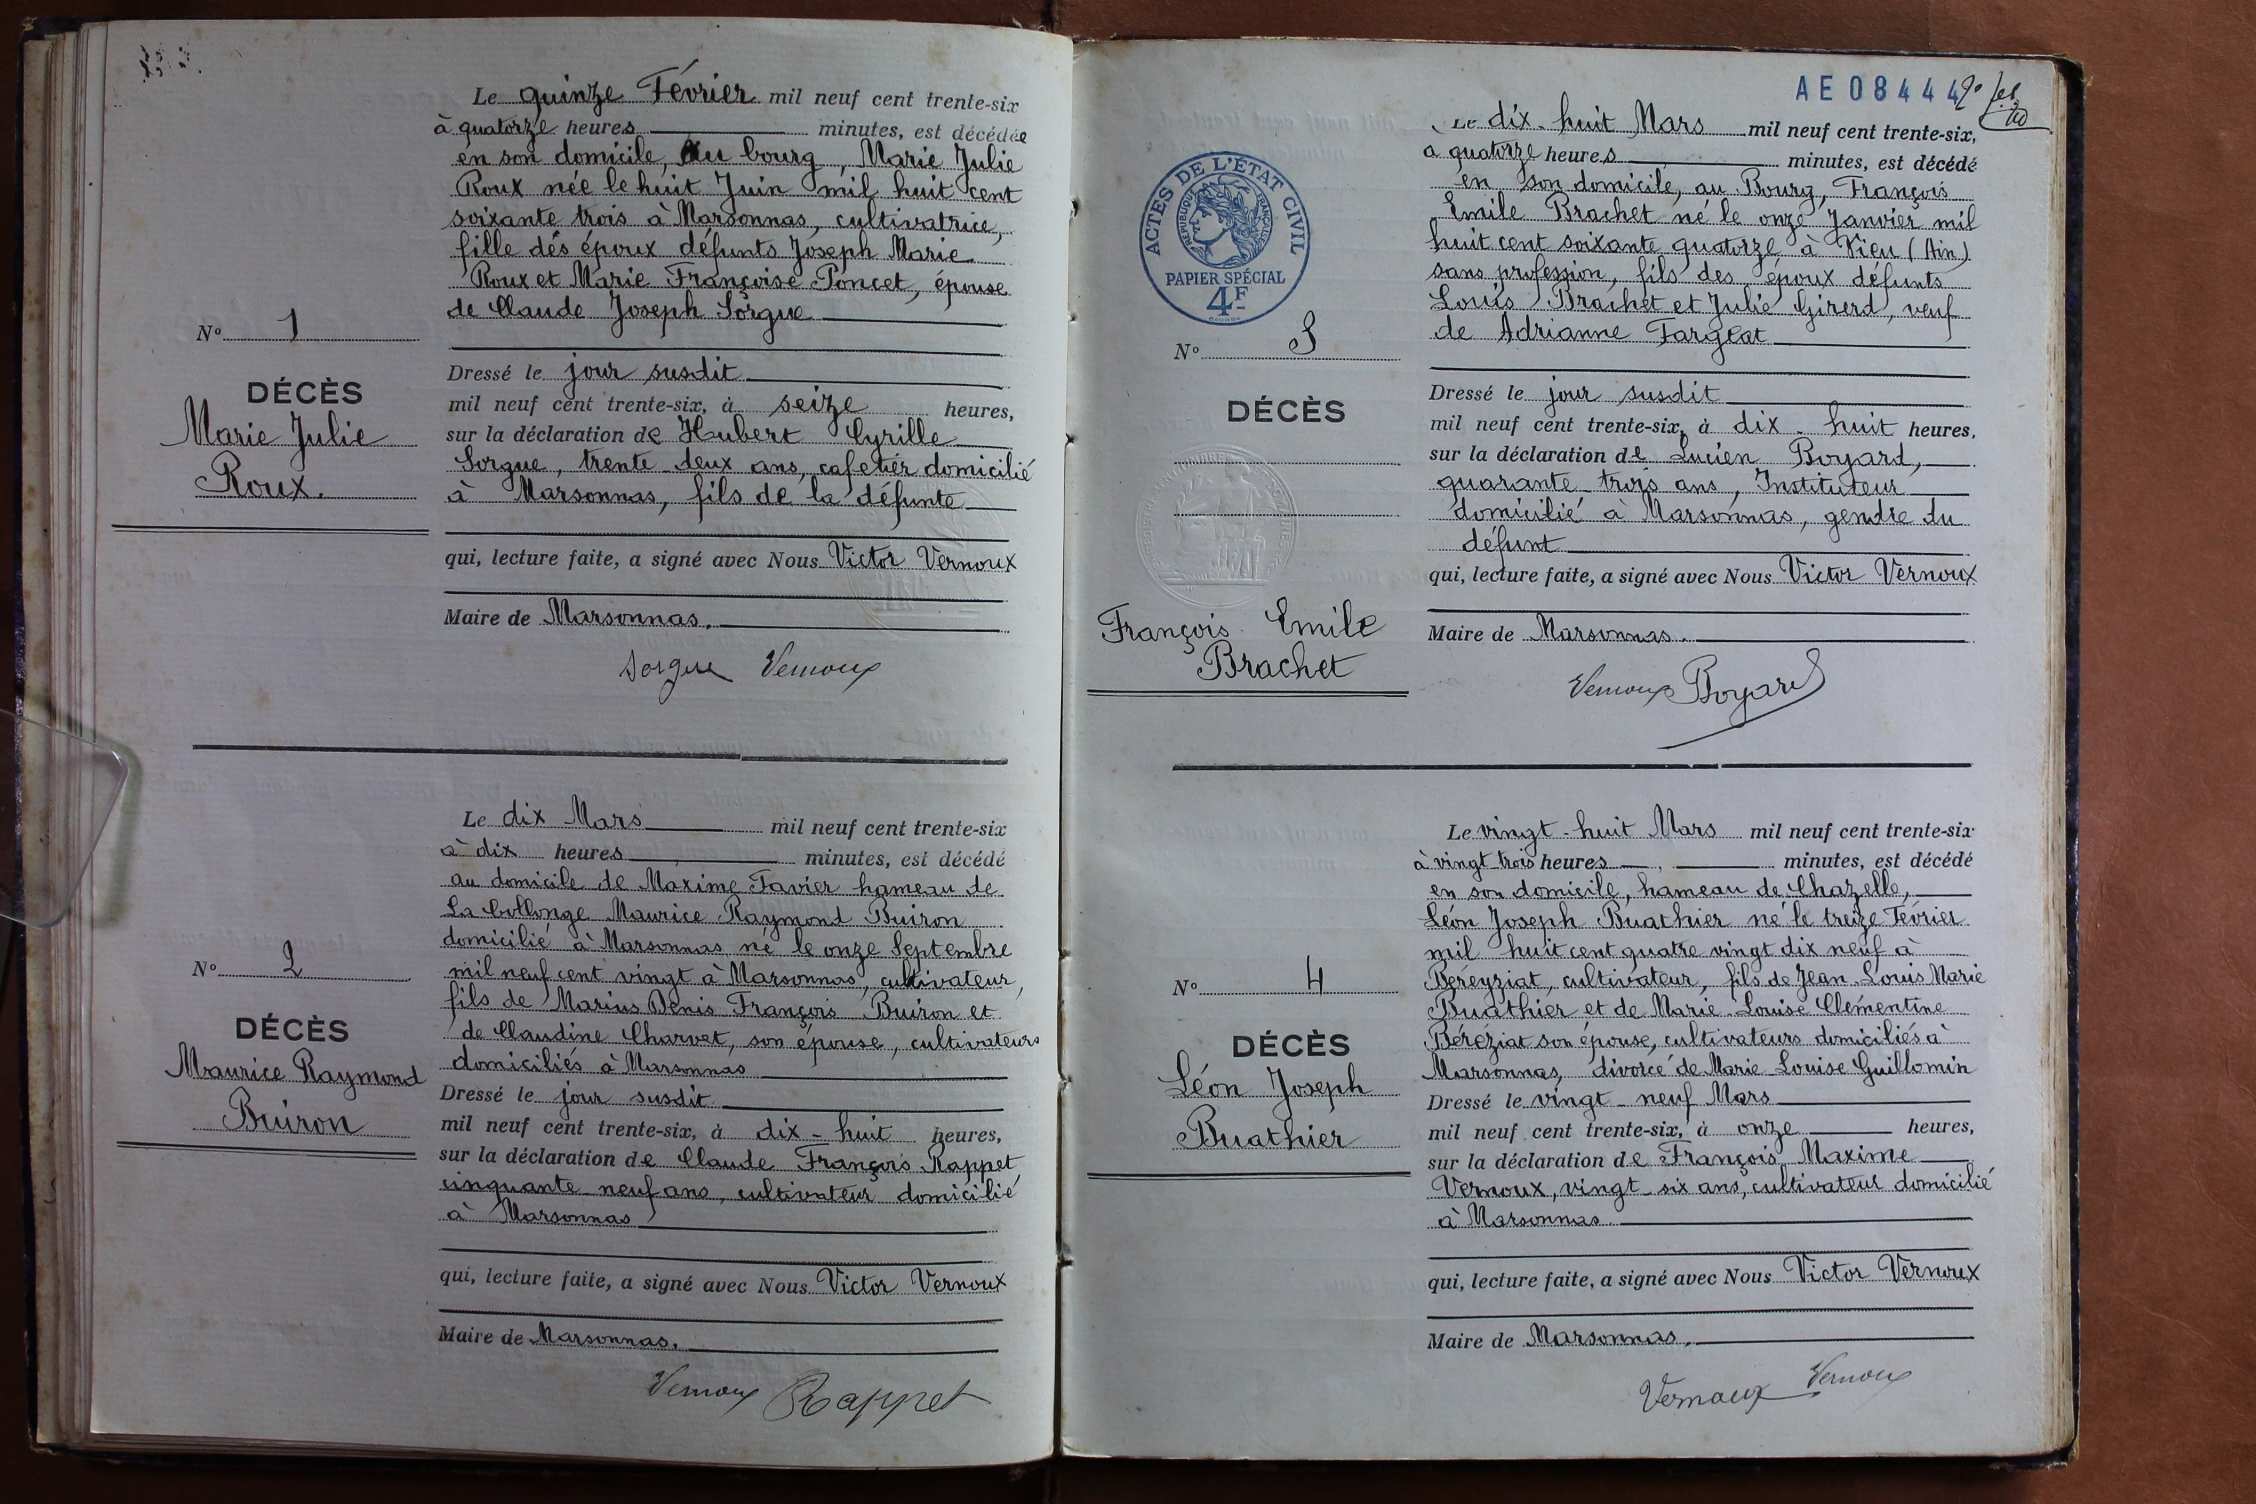 Le quinze Février mil neuf cent trente-six
à quatorze heures minutes, est décédée
en son domicile, au bourg, Marie Julie
Roux née le huit Juin mil huit cent
soixante trois à Marsonnas, cultivatrice,
fille des époux défunts Joseph Marie
Roux et Marie Françoise Poncet, épouse
de Claude Joseph Sorgue
N° 1
DÉCÈS
Marie Julie
Roux.
Dressé le jour susdit
mil neuf cent trente-six, à seize heures,
sur la déclaration de Hubert Cyrille
Sorgue, trente-deux ans, cafetier domicilié
à Marsonnas, fils de la défunte
qui, lecture faite, a signé avec Nous Victor Vernoux
Maire de Marsonnas.
Sorgue Vernoux
Le dix Mars mil neuf cent trente-six
à dix heures minutes, est décédé
au domicile de Maxime Favier hameau de
La Collonge Maurice Raymond Buiron
domicilié à Marsonnas né le onze Septembre
mil neuf cent vingt à Marsonnas, cultivateur,
fils de Marius Denis François Buiron et
de Claudine Charvet, son épouse, cultivateurs
domiciliés à Marsonnas
N° 2
DÉCÈS
Maurice Raymond
Buiron
Dressé le jour susdit
mil neuf cent trente-six, à dix-huit heures,
sur la déclaration de Claude François Rappet
cinquante-neuf ans, cultivateur domicilié
à Marsonnas
qui, lecture faite, a signé avec Nous Victor Vernoux
Maire de Marsonnas.
Vernoux Rappet
AE 08444
Le dix-huit Mars mil neuf cent trente-six,
à quatorze heures minutes, est décédé
en son domicile, au Bourg, François
Emile Brachet né le onze Janvier mil
huit cent soixante quatorze à Vieu (Ain)
sans profession, fils des époux défunts
Louis Brachet et Julie Girerd, veuf
de Adrianne Fargeat
ACTES DE L'ÉTAT CIVIL
RÉPUBLIQUE FRANÇAISE
PAPIER SPÉCIAL
4F
N° 3
DÉCÈS
François Emile
Brachet
Dressé le jour susdit
mil neuf cent trente-six, à dix-huit heures,
sur la déclaration de Lucien Boyard,
quarante-trois ans, Instituteur
domicilié à Marsonnas, gendre du
défunt
qui, lecture faite, a signé avec Nous Victor Vernoux
Maire de Marsonnas.
Vernoux Boyard
Le vingt-huit Mars mil neuf cent trente-six
à vingt trois heures minutes, est décédé
en son domicile, hameau de Chazelle,
Léon Joseph Buathier né le treize Février
mil huit cent quatre vingt dix neuf à
Béreyziat, cultivateur, fils de Jean-Louis Marie
Buathier et de Marie-Louise Clementine
Béréziat son épouse, cultivateurs domiciliés à
Marsonnas, divorcé de Marie-Louise Guillomin
N° 4
DÉCÈS
Léon Joseph
Buathier
Dressé le vingt-neuf Mars
mil neuf cent trente-six, à onze heures,
sur la déclaration de François Maxime
Vernoux, vingt-six ans, cultivateur domicilié
à Marsonnas
qui, lecture faite, a signé avec Nous Victor Vernoux
Maire de Marsonnas.
Vernoux Vernoux